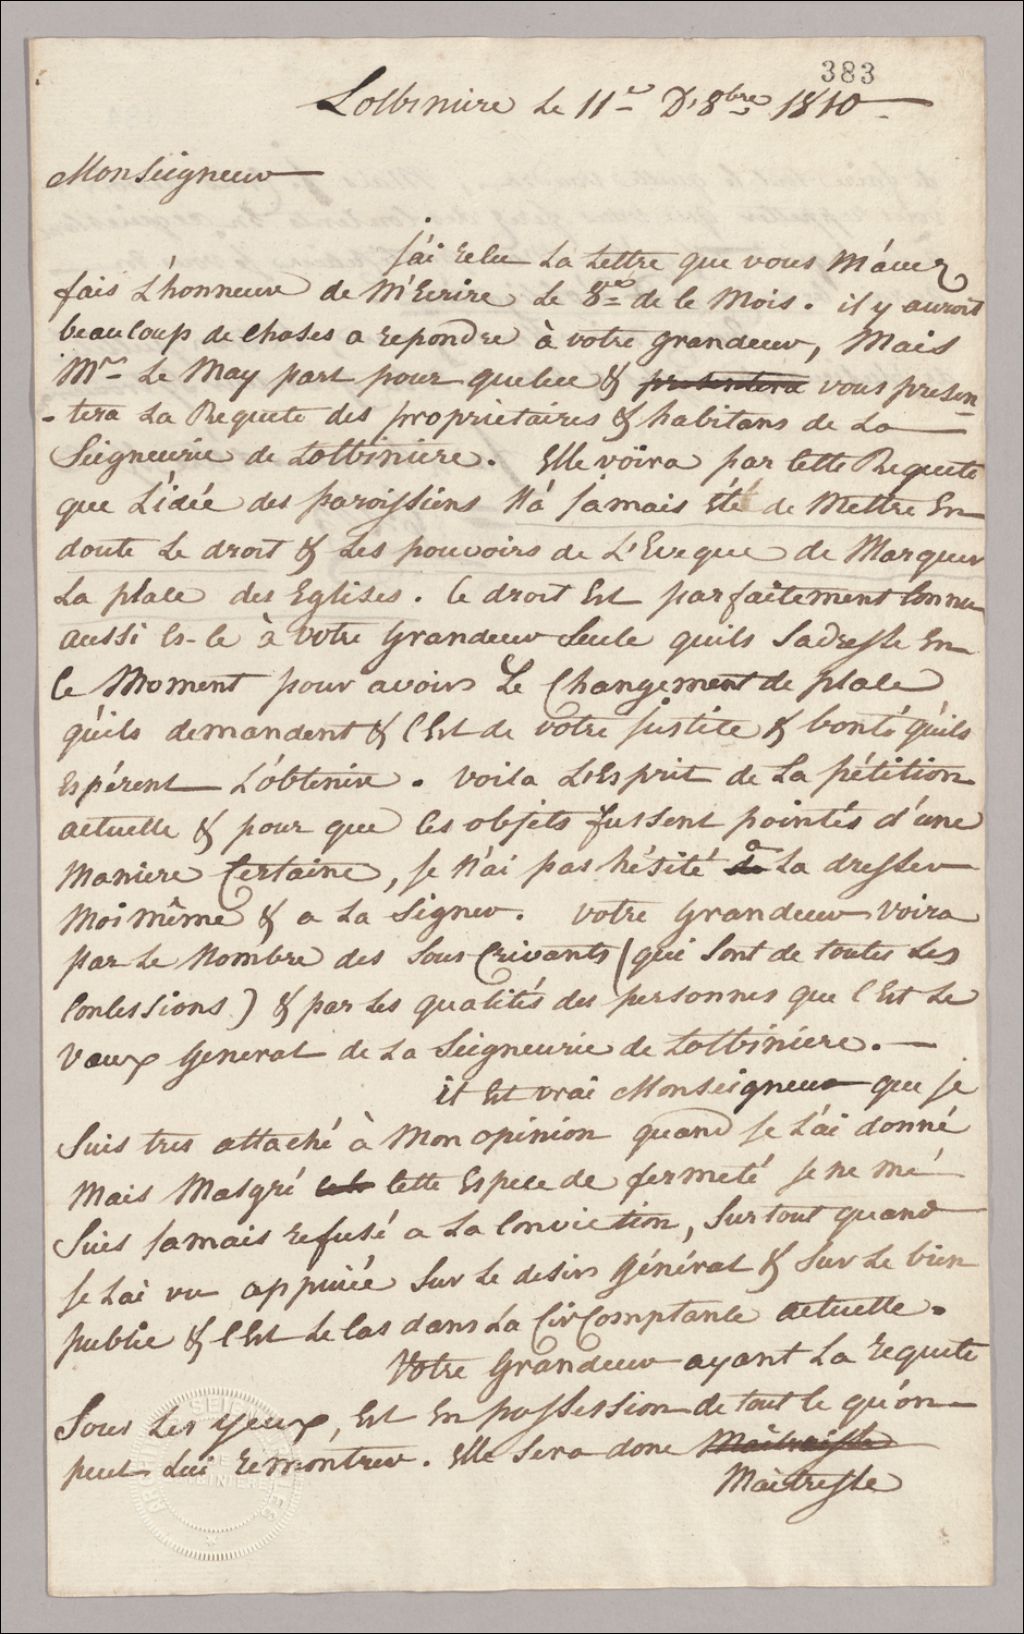 383
Lotbiniere le 11e D. 8bre 1810
Monseigneur
j'ai relu La Lettre que vous M'avez
fais L'honneur de M'Ecrire le 8e de ce Mois. il y auroit
beaucoup de choses a repondre à votre grandeur, Mais
Mr Le May part pour quebec & presentera vous presen-
-tera La Requete des proprietaires & habitans de La
Seigneurie de Lotbiniere. Elle voira par cette Requete
que L'idée des paroissiens N'a jamais été de Mettre En
doute Le droit & Les pouvoirs de L'Eveque de Marquer
La place des Eglises. Ce droit Est parfaitement Connu
aussi Es-ce à votre Grandeur Seule quils Sadresse En
Ce Moment pour avoir Le Changement de place
qu'ils demandent & C'Est de votre justice & bonté qu'ils
Espérent L'obtenire. Voila L'Esprit de La pétition
actuelle & pour que les objets fussent pointés d'une
Maniere Certaine, je N'ai pas hésité a La dresser
Moi même & a La Signer. Votre Grandeur voira
par Le Nombre des Souscrivants (qui Sont de toutes Les
Concessions) & par Les qualités des personnes que C'Est Le
Vaux General de La Seigneurie de Lotbiniere.
it Est vrai Monseigneur que je
Suis tres attaché à Mon opinion quand je L'ai donné
Mais Malgré cette Espece de fermeté je ne mé
Suis jamais refusé a La Conviction, Surtout quand
je Lai vu appuiée Sur Le desir Général & Sur Le bien
public & C'Est Le Cas dans La Circomptance actuelle.
Votre Grandeur ayant La requete
Sous Les yeux, Est En possession de tout ce qu'on
peut Lui remontrer. Elle Sera donc
Maitresse